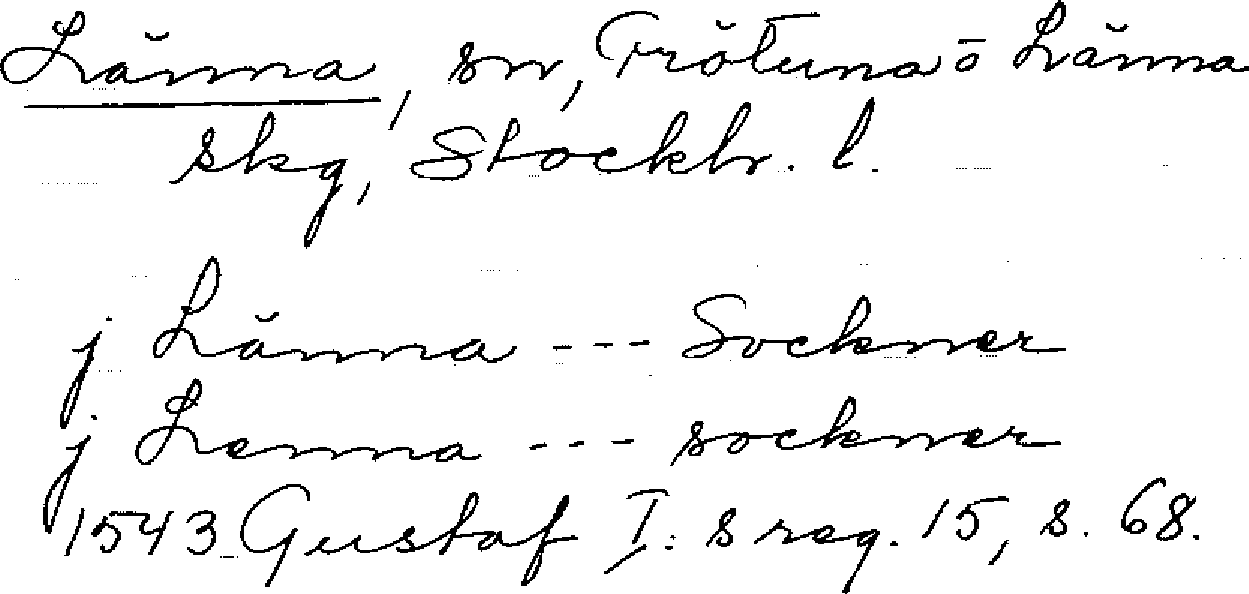 Länna, sn, Frötuna o Länna
skg, Stockh. l.
j Länna --- Sockner
j Lenna --- sockner
1543 Gustaf I:s reg. 15, s. 68.